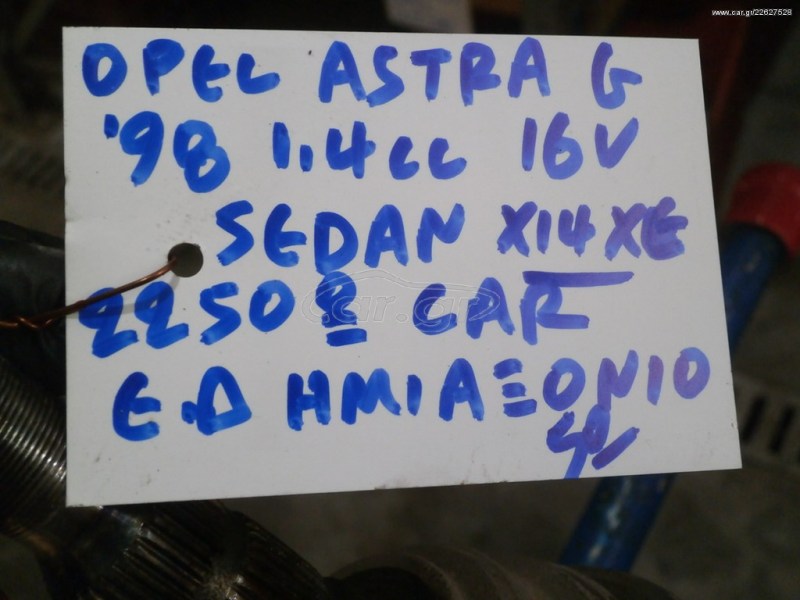 www.car.gr/22627528
OPEL ASTRA G
'98 1.4cc 16V
SEDAN X14XE
22508 CAR
car.gr
Ε.Δ ΗΜΙΑΞΟΝΙΟ